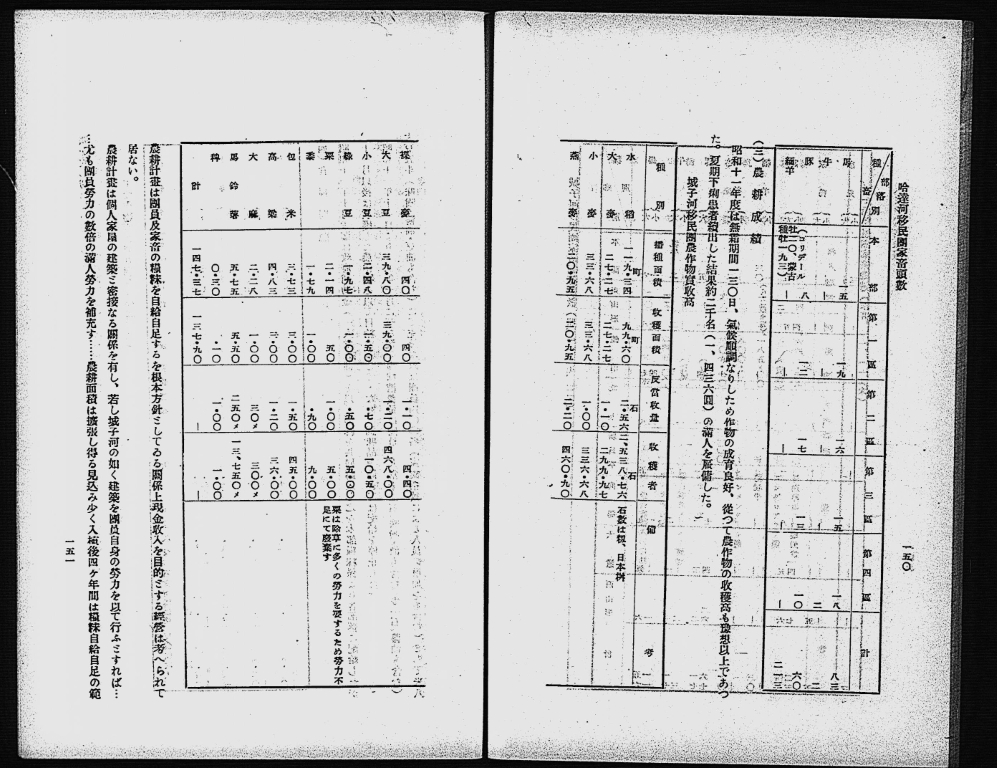 一五〇
哈達河移民團家畜頭數
種畜／部落別 本部 第一區 第二區 第三區 第四區 計
馬 一五 九 一六 一五 一八 八三
牛 ｜ ｜ ｜ ｜ 二 二
豚 八 一二 一七 一三 一〇 六〇
緬羊 （コリデール牡二〇、蒙古種牡一九三） ｜ ｜ ｜ ｜ ｜ 二一三
（三）農耕成績
昭和十一年度は無霜期間一三〇日、氣候順調なりしため作物の成育良好、從つて農作物の收穫高も豫想以上であつ
た。夏期下痢患者續出した結果約二千名（一、四三六圓）の滿人を雇傭した。
城子河移民團農作物實收高
種別 播種面積 收穫面積 反當收量 收穫者 備考
水稻 一一九・三四町 九九・六〇町 二・五六石 二、五三八・七六石 石數は籾、日本桝
大麥 二七・二七 二七・二七 一・一〇 二九九・九七
小麥 三三・六八 三三・六八 一・〇〇 三三六・六八
燕麥 二〇・九五 二〇・九五 二・二〇 四六〇・九〇
裸麥 ・四〇 ・四〇 一・一〇 四・四〇
大豆 三九・八〇 三九・〇〇 一・二〇 四六八・〇〇
小豆 二・四八 一・五〇 ・七〇 一〇・五〇
綠豆 一・九七 一・〇〇 ・五〇 五・〇〇
粟 二・一四 ・五〇 一・〇〇 五・〇〇 粟は除草に多くの勞力を要するため勞力不足にて廢棄す
黍 一・七九 一・〇〇 ・九〇 九・〇〇
包米 三・七三 三・〇〇 一・五〇 四五・〇〇
高粱 四・八三 三・〇〇 一・二〇 三六・〇〇
大麻 二・二八 一・〇〇 三〇〆 三〇〇〆
馬鈴薯 五・七五 五・五〇 二五〇〆 一三、七五〇〆
稗 〇・三〇 ・一〇 一・〇〇 一・〇〇
計 一四七・三七 一三七・九〇 ｜ ｜
農耕計畫は團員及家畜の糧秣を自給自足するを根本方針としてゐる關係上現金收入を目的とする經營は考へられて
居ない。
農耕計畫は個人家屋の建築と密接なる關係を有し、若し城子河の如く建築を團員自身の勞力を以て行ふとすれば…
…尤も團員勞力の數倍の滿人勞力を補充す……農耕面積は擴張し得る見込み少く入植後四ケ年間は糧秣自給自足の範
一五一